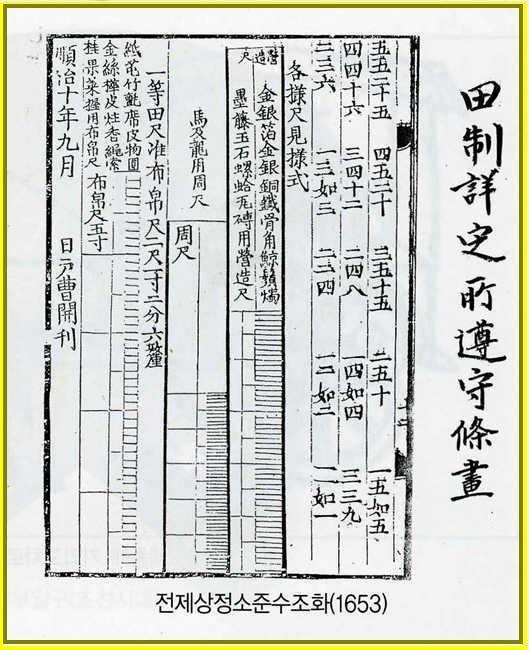 田制詳定所遵守條畫
五五二十五 四五二十 三五十五 二五十 一五如五
四四十六 三四十二 二四八 一四如四 三三九
二三六 一三如三 二二四 一二如二 一一如一
各樣尺見樣式
營造尺
金銀箔金銀銅鐵骨角鯨鬚燭
墨藤玉石螺蛤瓦磚用營造尺
馬及龍用周尺
周尺
一等田尺准布帛尺二尺一寸二分六釐
紙花竹氈席皮物圓
金絲樺皮炷香繩索
桂果菜握用布帛尺
布帛尺五寸
順治十年九月 日戶曹開刊
전제상정소준수조화(1653)